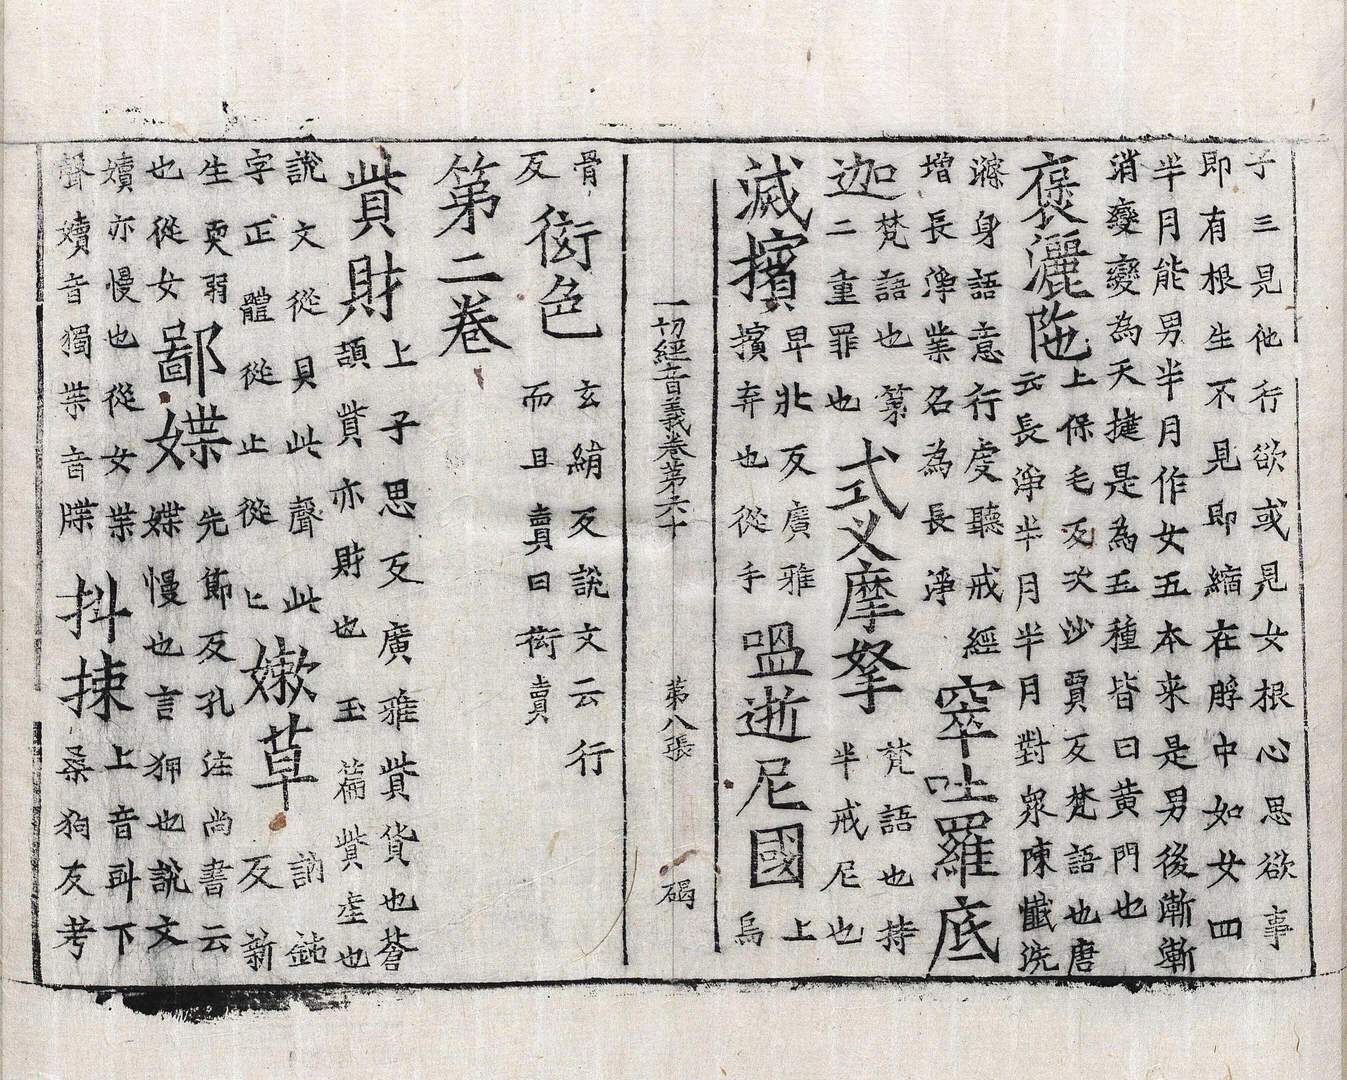 子三見他行欲或見女根心思欲事
即有根生不見即縮在脬中如女四
半月能男半月作女五本來是男後漸漸
消變變為天揵是為五種皆曰黃門也
褒灑陁
上保毛反次沙賈反梵語也唐
云長淨半月半月對眾陳懺洗
滌身語意行虔聽戒經
增長淨業名為長淨
窣吐羅底
迦
梵語也第
二重罪也
式叉摩拏
梵語也持
半戒尼也
滅擯
卑北反廣雅
擯弃也從手
嗢逝尼國
上
烏
一切經音義卷第六十 第八張 碣
骨
反
衒色
玄絹反說文云行
而且賣曰衒賣
第二卷
貲財
上子思反廣雅貲貨也蒼
頡貲亦財也玉篇貲虛也
說文從貝此聲此
字正體從止從匕
嫩草
訥鈍
反新
生耎弱
也從女
鄙媟
先節反孔注尚書云
媟慢也言狎也說文
嬻亦慢也從女枼
聲嬻音獨枼音牒
抖揀
上音㪷下
桑狗反考